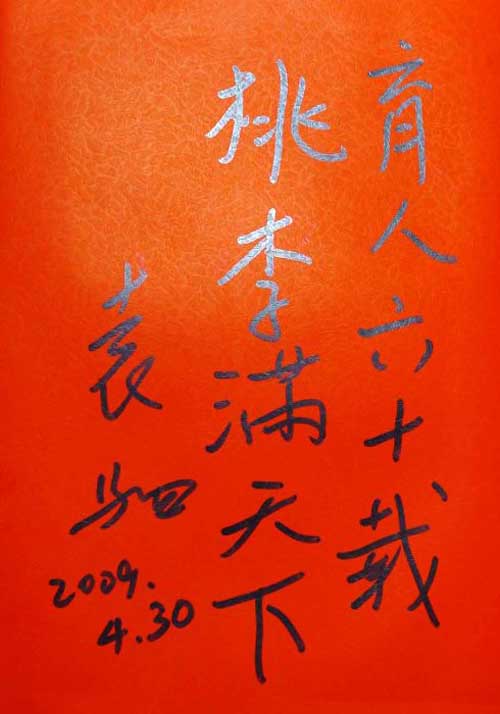 育人六十载
桃李满天下
袁驷
2009.
4.30